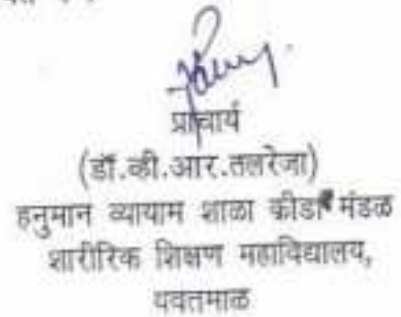 प्राचार्य
(डॉ.व्ही.आर.तलरेजा)
हनुमान व्यायाम शाळा क्रीडा मंडळ
शारीरिक शिक्षण महाविद्यालय,
यवतमाळ